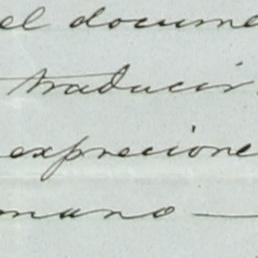 el docume
traducir
exprecione
mano —